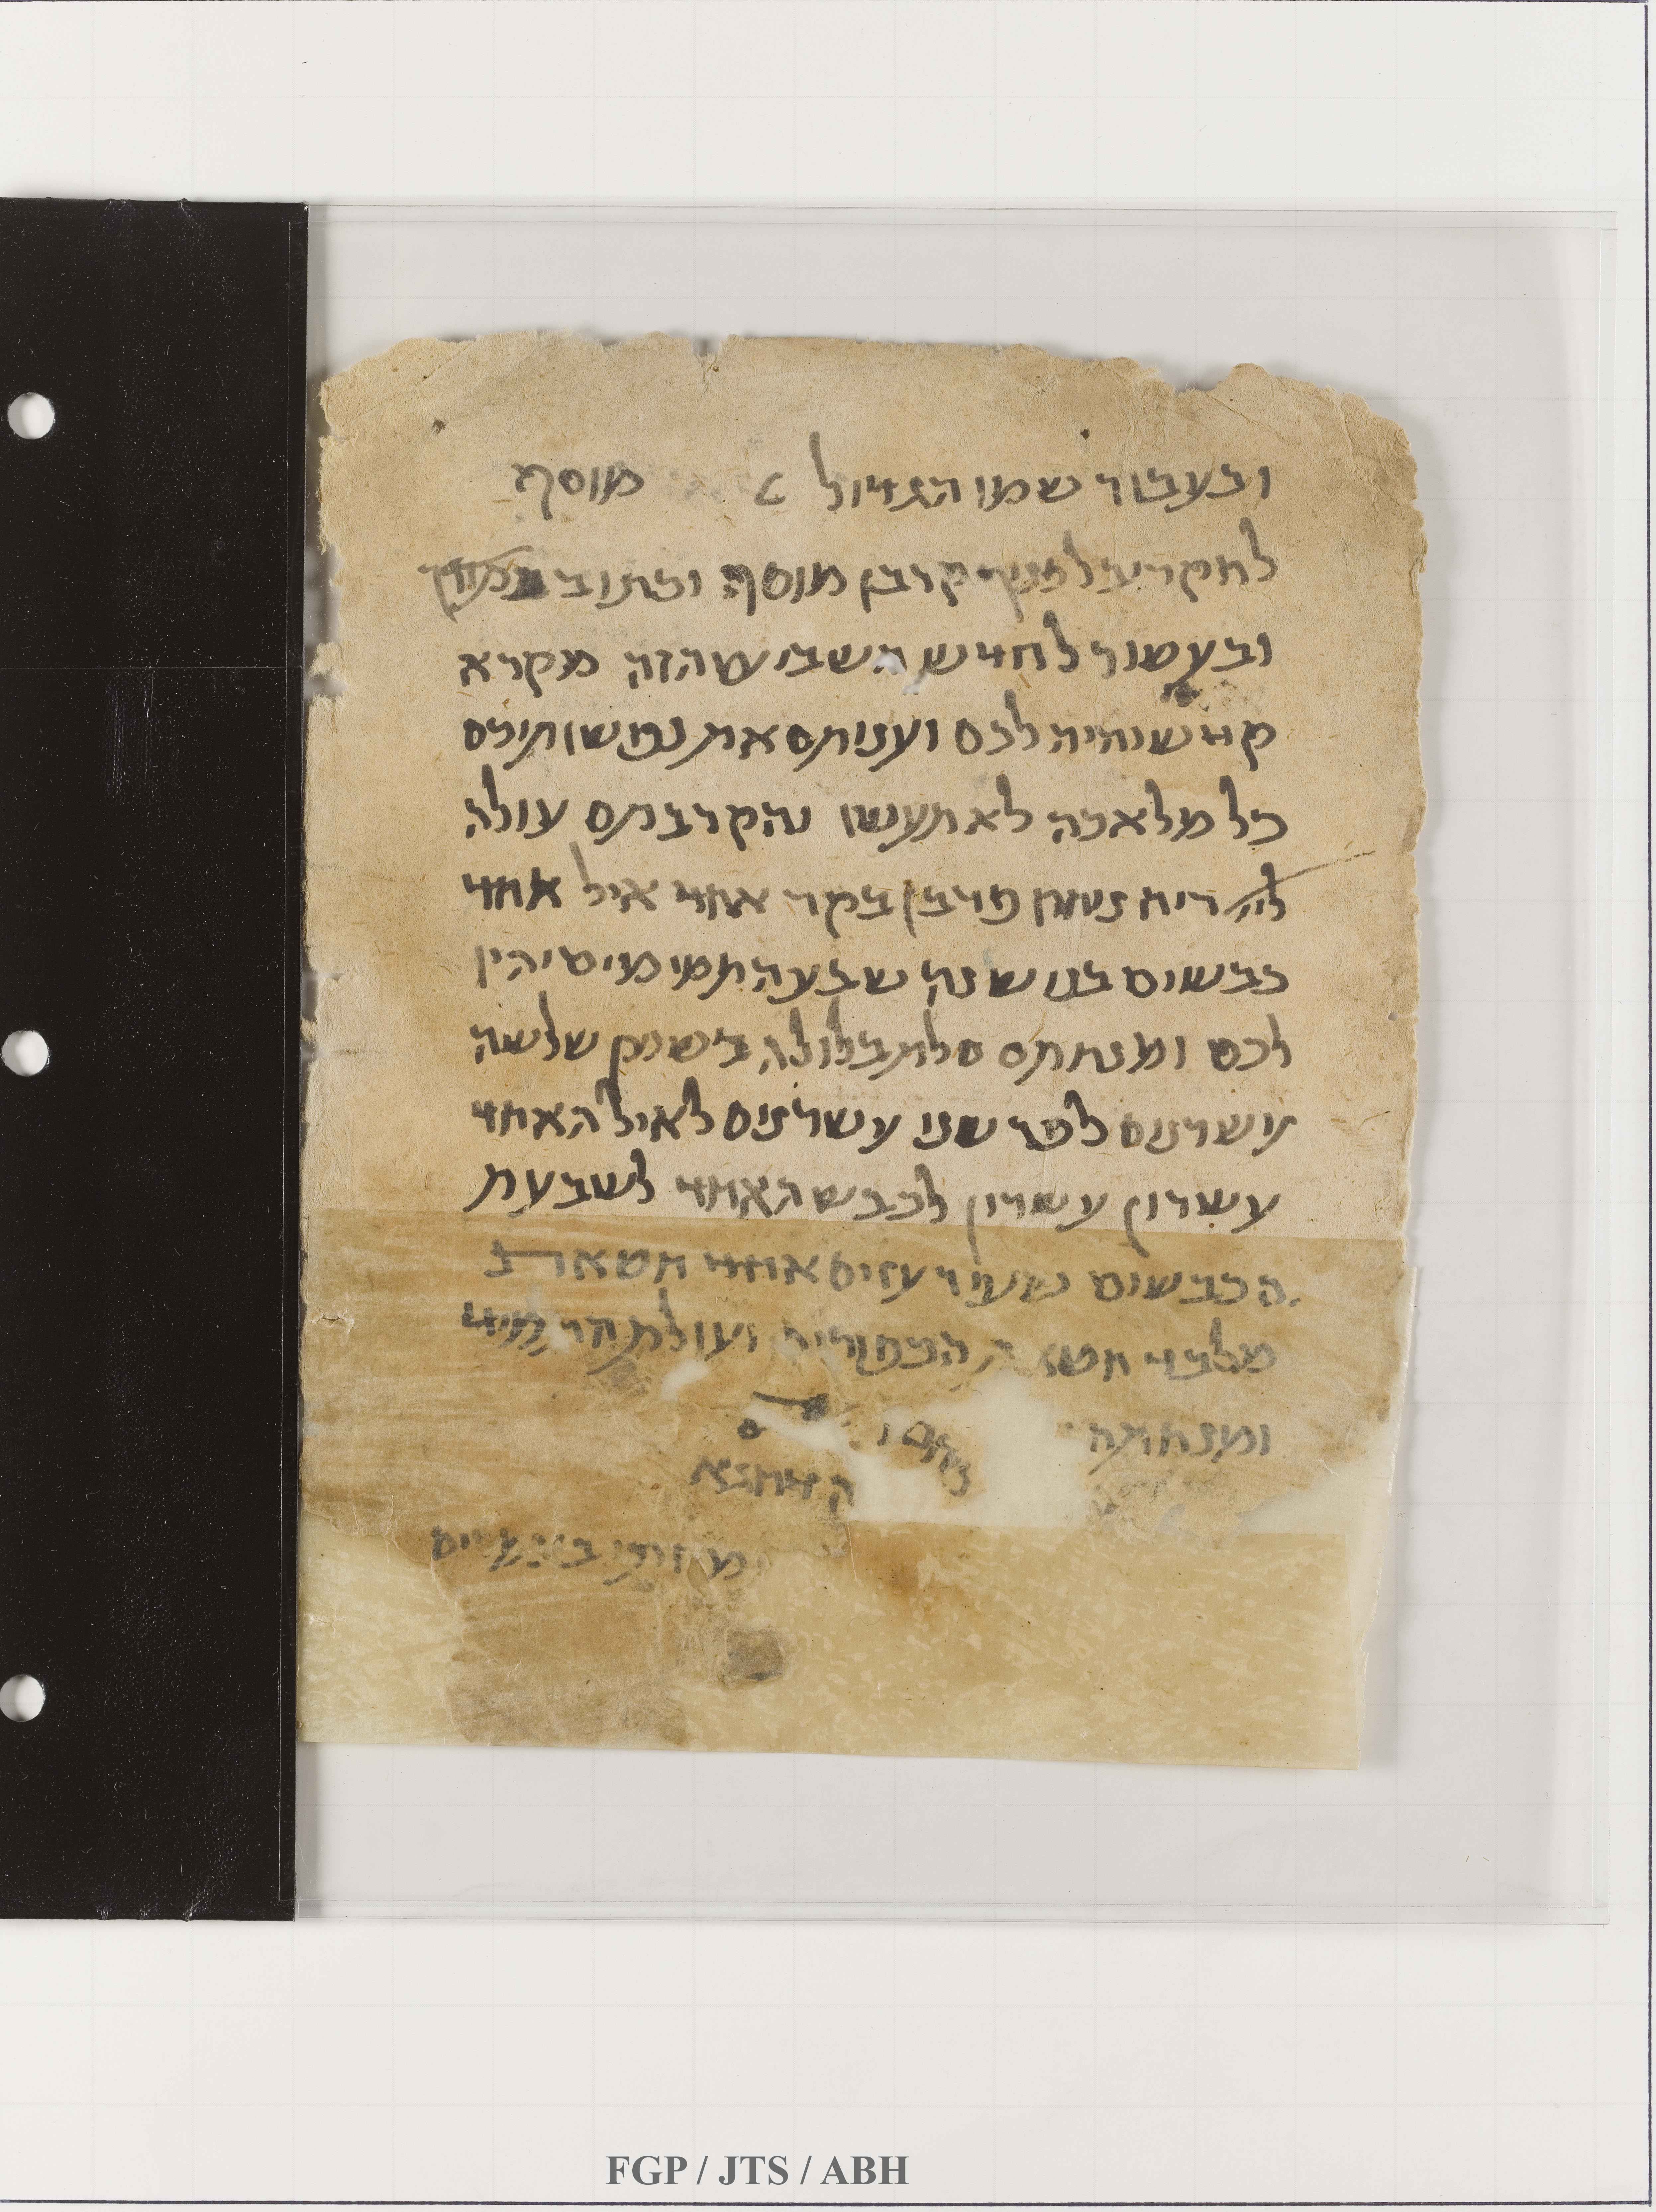 ובעבור שמו הגדול מוסף
לחקריב לפניך קרבן מוסף וכתוב
ובעשור לחדש השביעי הזה מקרא
קדש יהיה לכם ועניתם את נפשותיכם
כל מלאכה לא תעשו והקרבתם עולה
לה׳ ריח ניחח פר בן בקר אחד איל אחד
כבשים בני שנה שבעה תמימים יהיו
לכם ומנחתם סלת בלולה בשמן שלשה
עשרנים לפר שני עשרנים לאיל האחד
עשרון עשרון לכבש האחד לשבעת
הכבשים שעיר עזים אחד חטאת
מלבד חטאת הכפורים ועולת התמיד
ומנחתה
FGP / JTS / ABH